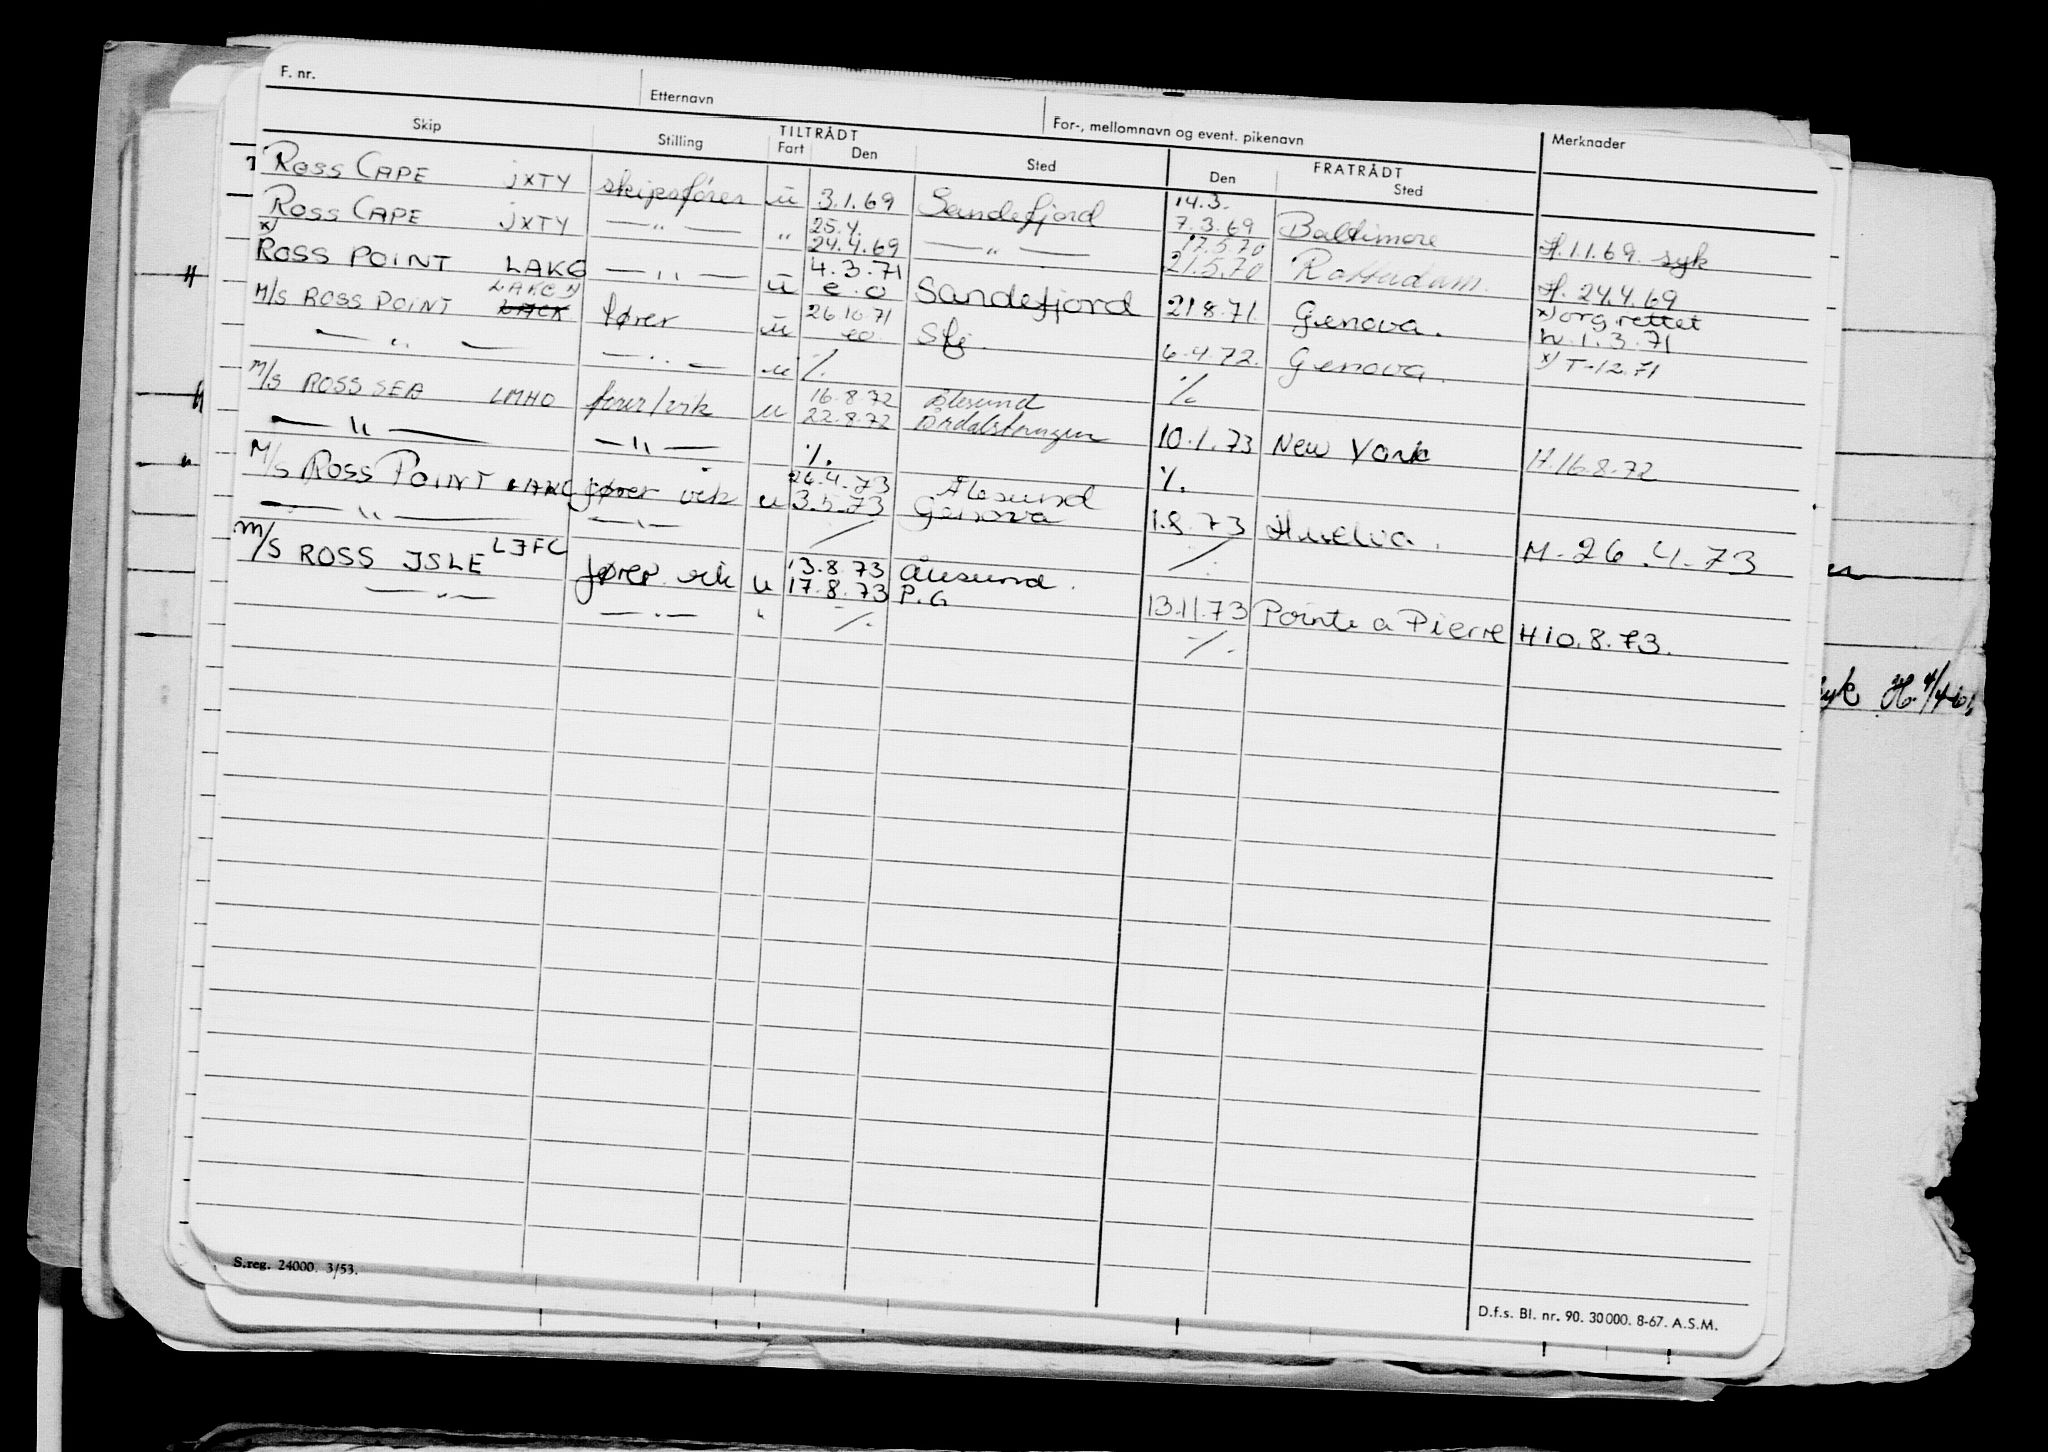 F. nr.
Etternavn
For-, mellomnavn og event. pikenavn
Merknader
Skip Stilling TILTRÅDT Fart Den Sted FRATRÅDT Den Sted
ROSS CAPE JXTY skipsfører u 3.1.69 Sandefjord 14.3. 7.3.69 Baltimore H.1.1.69. syk
ROSS CAPE JXTY —"— " 25.4. 24.4.69 —"— 17.5.70 21.5.70 Rotterdam. H. 24.4.69
x) ROSS POINT LAKG —"— u 4.3.71 e.o Sandefjord 21.8.71. Genova. x) org rettet h.1.3.71
M/S ROSS POINT fører u 26.10.71 eo Sfj. 6.4.72. Genova. x) T-12.71
—"— —"— u ./. ./.
M/S ROSS SEA LMHO fører/vik u 16.8.72 22.8.72 Ålesund 10.1.73 New York H.16.8.72
—"— —"— ./. ./.
M/S ROSS POINT LAKG fører vik u 26.4.73 3.5.73 Ålesund Genova 1.8.73 Huelva. M-26.4.73
—"— —"— ./. ./.
M/S ROSS ISLE LJFC fører vik u 13.8.73 17.8.73 Ålesund. P.G 13.11.73 Pointe a Pierre H10.8.73.
—"— —"— " ./. ./.
syk H.
S.reg. 24000. 3/53.
D.f.s. Bl. nr. 90. 30000. 8-67. A.S.M.